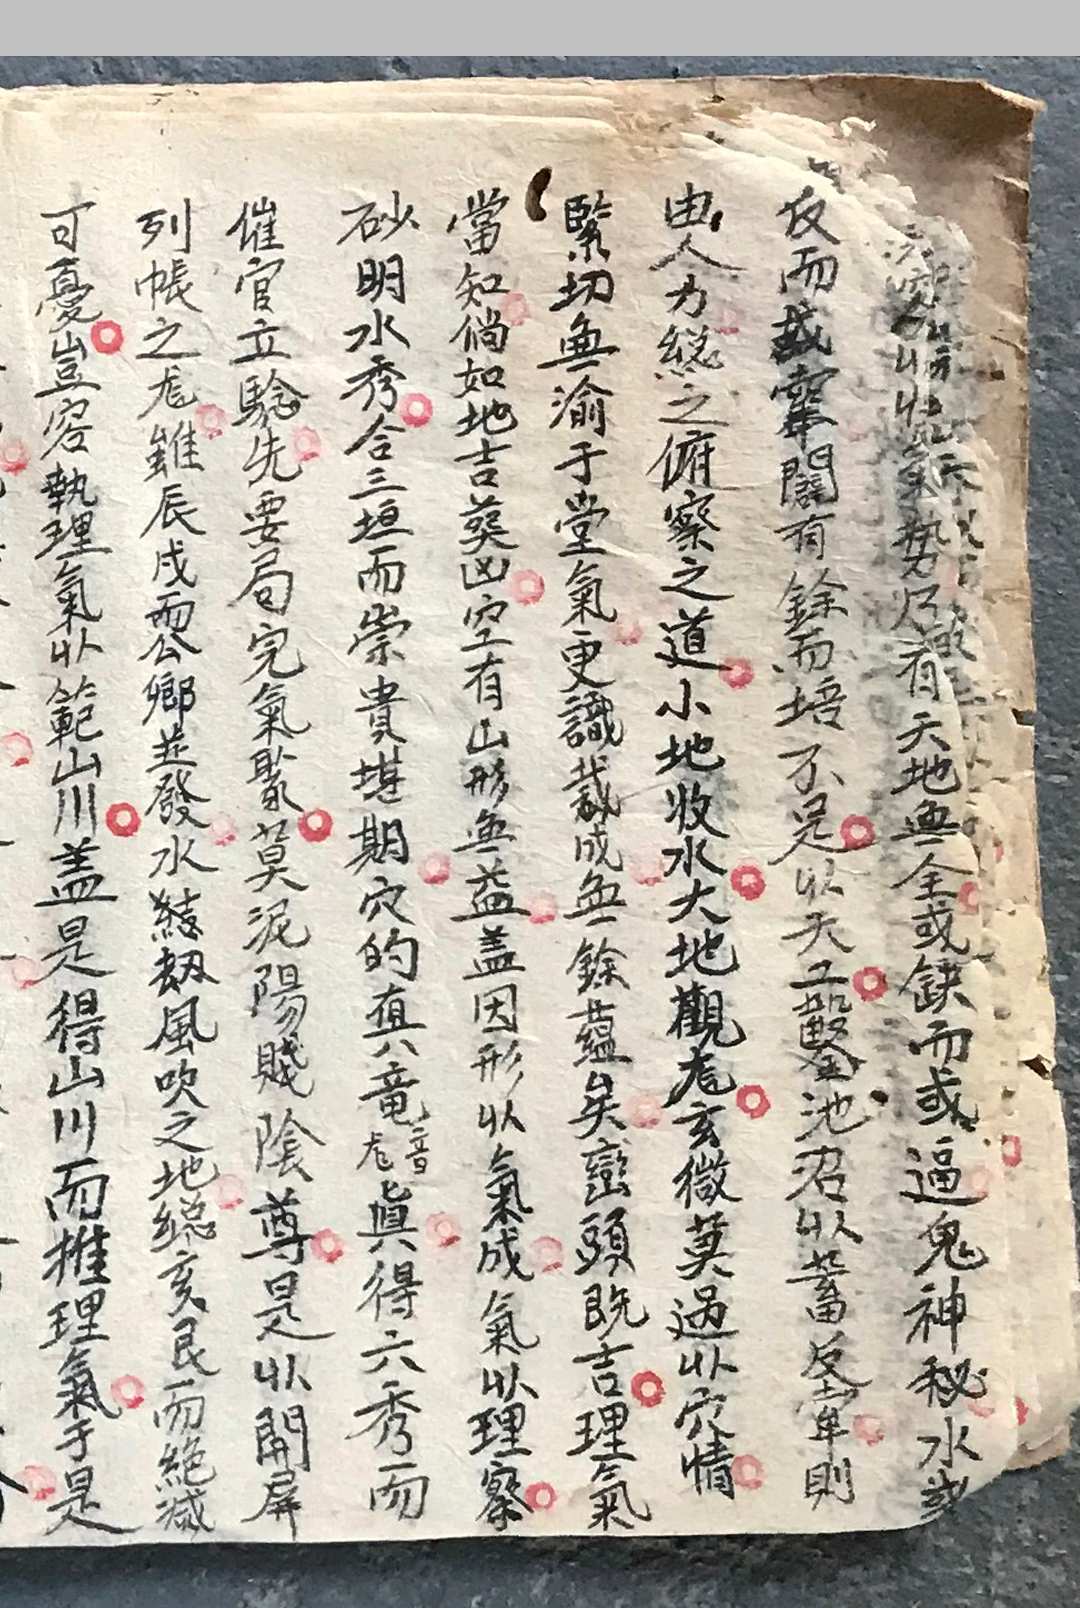 勢乃有天地無全或缺而或逼鬼神秘水或
反而或窜闊有餘而培不足以天工鑿池沼以蓄反牽則
由人力総之俯察之道小地收水大地觀尨玄微莫過以穴情
緊切無渝于堂氣更識裁成無餘蘊矣巒頭既吉理氣
當知倘如地吉葬凶空有山形無益盖因形以氣成氣以理察
砂明水秀合三垣而崇貴堪期穴的真八竜音尨眞得六秀而
催官立驗先要局完氣聚莫泥陽賤陰尊是以開屏
列帳之尨雖辰戌而公鄉並發水劫風吹之地総亥艮而絶滅
可憂豈容執理氣以範山川盖是得山川而推理氣于是